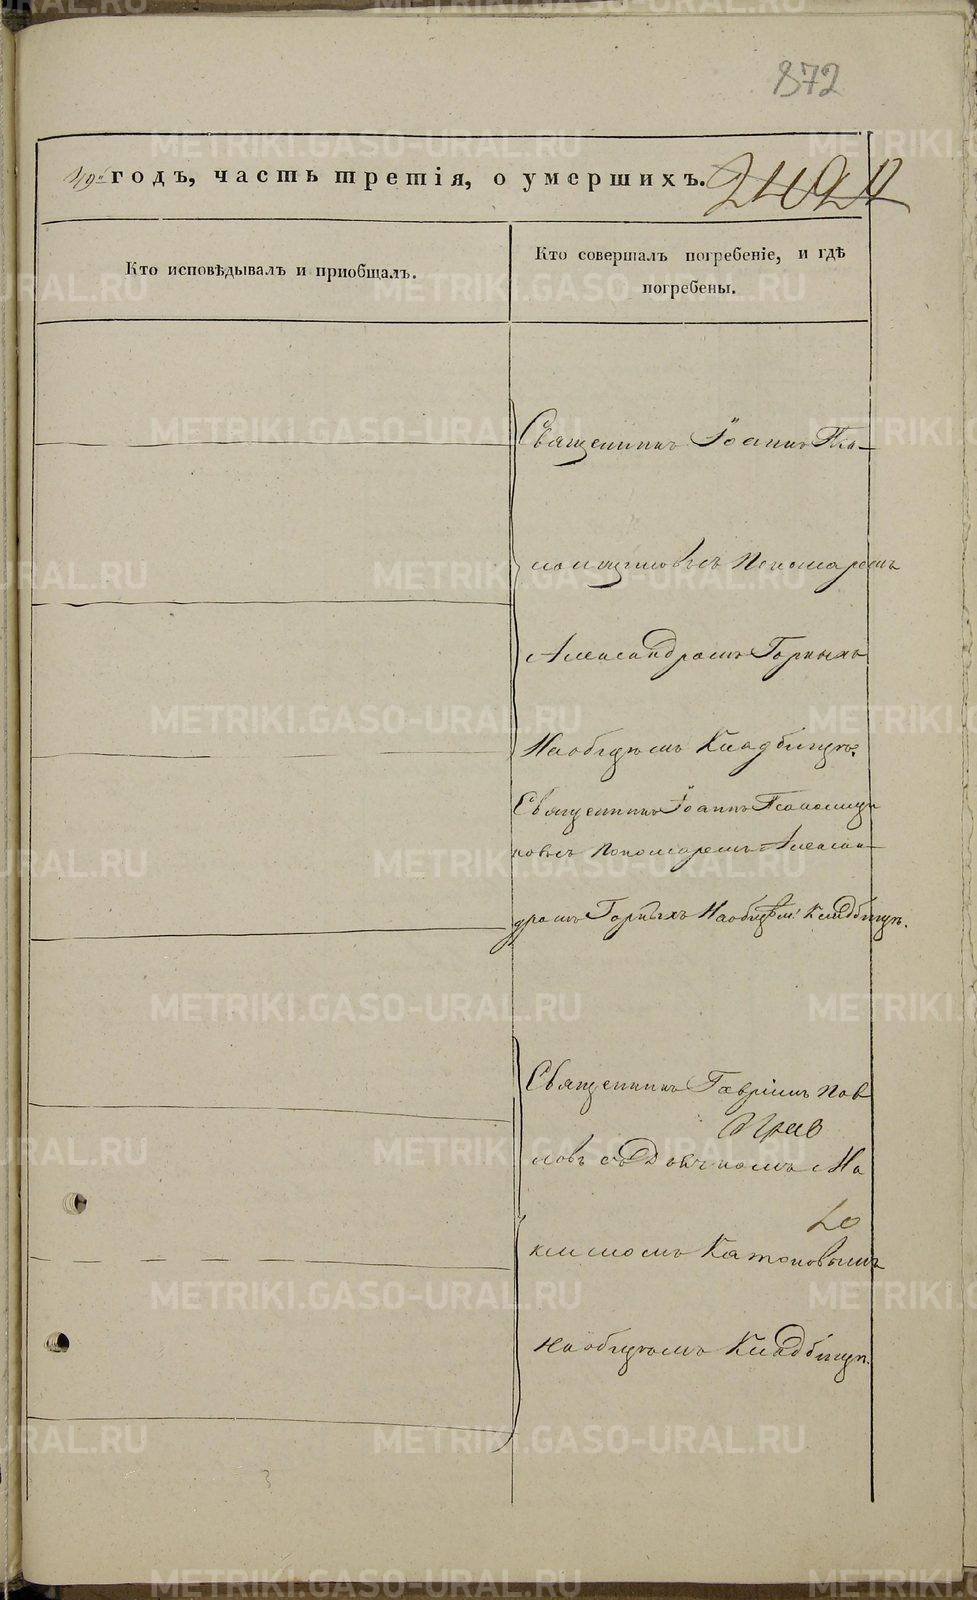 872
49го годъ, часть третія, о умершихъ.
Кто исповѣдывалъ и пріобщалъ.
Кто совершалъ погребеніе, и гдѣ
погребены.
Священникъ Іоаннъ
Пономаремъ
Александромъ Горныхъ
На общемъ Кладбищѣ.
Священникъ Іоаннъ
новъ съ Пономаремъ Алексан-
дромъ Горныхъ На общем Кладбищѣ.
Священникъ Гавріилъ Пав
ловъ съ Дьячкомъ Ма
Катоновымъ
на общемъ Кладбищѣ.
METRIKI.GASO-URAL.RU